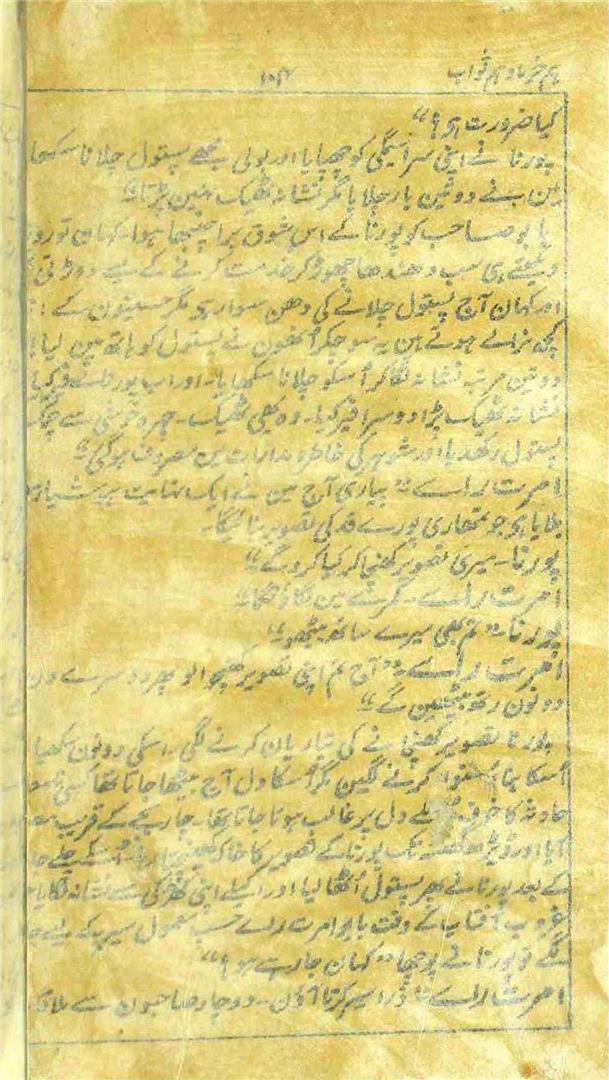 ہم خرما و ہم ثواب ۱۰۴
کیا ضرورت ہی؟“
پورنا نے اپنی سراسیمگی کو چھپایا اور بولی مجھے پستول چلانا سکھا
مین نے دو تین بار چلایا مگر نشانہ ٹھیک نہین پڑتا“
بابو صاحب کو پورنا کے اس شوق پر اچنبھا ہوا۔ کہان تو روز
دیکھتے ہی سب دھندھا چھوڑ کر خدمت کرنے کے لیے دوڑتی
اور کہان آج پستول چلانے کی دھن سوار ہی مگر حسینون کے
کچھ نرالے ہوتے ہین یہ سوچکر اُنھون نے پستول کو ہاتھ مین لیا
دو تین مرتبہ نشانہ لگا کر اُسکو چلانا سکھایا۔ اور اب پورنا نے فیر کیا
نشانہ ٹھیک پڑا دوسرا فیر کیا۔ وہ بھی ٹھیک۔ چہرہ خوشی سے چمک
پستول رکھدیا اور شوہر کی خاطر و مدارات مین مصروف ہو گئی“
امرت راے ”پیاری آج مین نے ایک نہایت ہوشیار
بلایا ہی جو تمھاری پورے قد کی تصویر بنائیگا۔
پورنا۔ میری تصویر کھنچا کر کیا کروگے“
امرت راے۔ کمرے مین لگاؤنگا“
پورنا ”تم بھی میرے ساتھ بیٹھو“
امرت راے ”آج تم اپنی تصویر کھچوالو پھر دوسرے دن
دونون بیٹھینگے“
پورنا تصویر کھنچانے کی تیاریان کرنے لگی۔ اسکی دونون سکھیان
اُسکا بناؤ سنگار کرنے لگین مگر اُسکا دل آج بیٹھا جاتا تھا کسی نامعلوم
حادثہ کا خوف دل پر غالب ہوتا جاتا تھا۔ چار بجے کے قریب
آیا اور ڈیڑھ گھنٹہ تک پورنا کے تصویر کا خاکہ کھینچتا رہا اُسکے چلے جانے
کے بعد پورنا نے پھر پستول اُٹھا لیا اور اکیلے اپنی کھڑکی سے نشانہ لگایا
غروب آفتاب کے وقت بابو امرت راے حسب معمول سیر کے لیے
لگے تو پورنا نے پوچھا ”کہان جا رہے ہو؟“
امرت راے ”ذرا سیر کرتا آؤن۔ دو چار صاحبون سے ملاقات